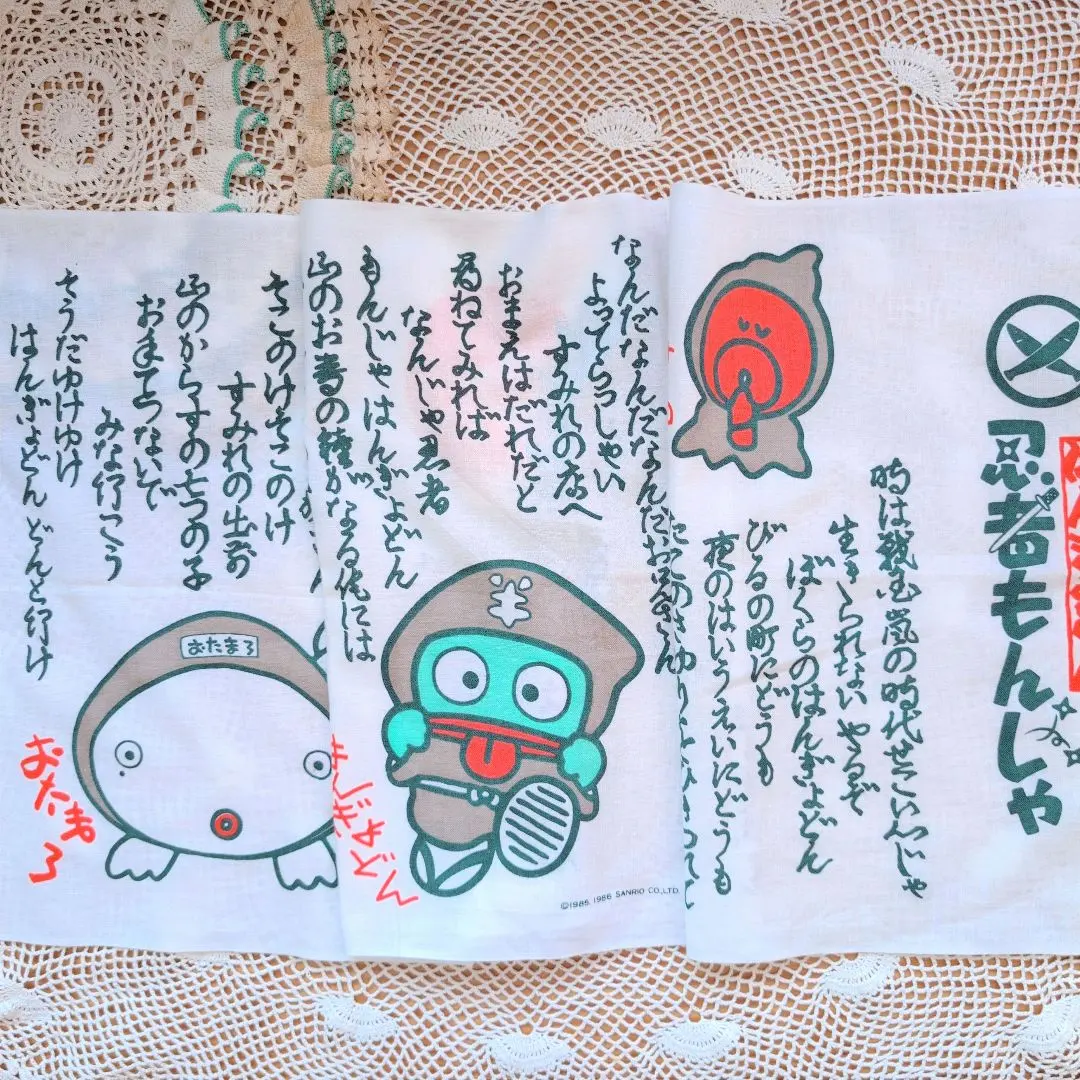 忍者もんじゃ
時は戦国嵐の時代せこい心じゃ
生きられないやるぞ
ぼくらのはんぎょどん
びるの町にどうも
夜のはいうぇいにどうも
なんだなんだなんだなんだお兄さん
よってらっしゃい
すみれの店へ
おまえはだれだと
尋ねてみれば
なんじゃ忍者
もんじゃはんぎょどん
山のお寺の鐘がなる佗には
そこのけそこのけ
すみれの出前
山のからすの七つの子
お手てつないで
みな行こう
そうだゆけゆけ
はんぎょどんどんと行け
おたまろ
おたまろ
はんぎょどん
©1985, 1986 SANRIO CO.,LTD.